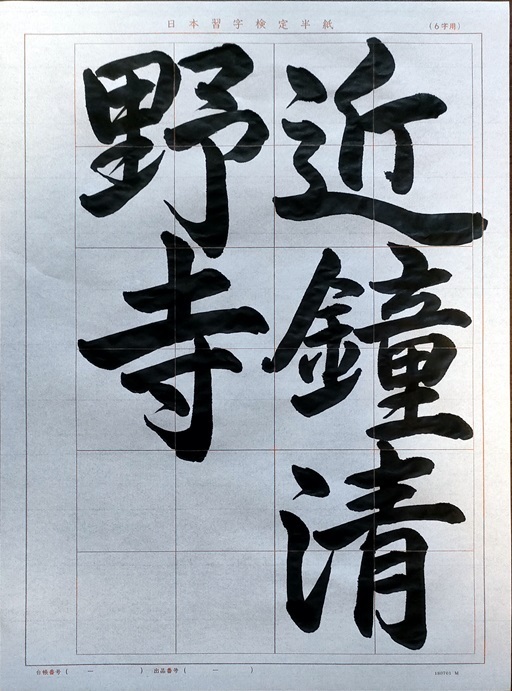 日本習字検定半紙
(6字用)
近鐘清
野寺
台帳番号 ( ー ) 出品番号 ( ー )